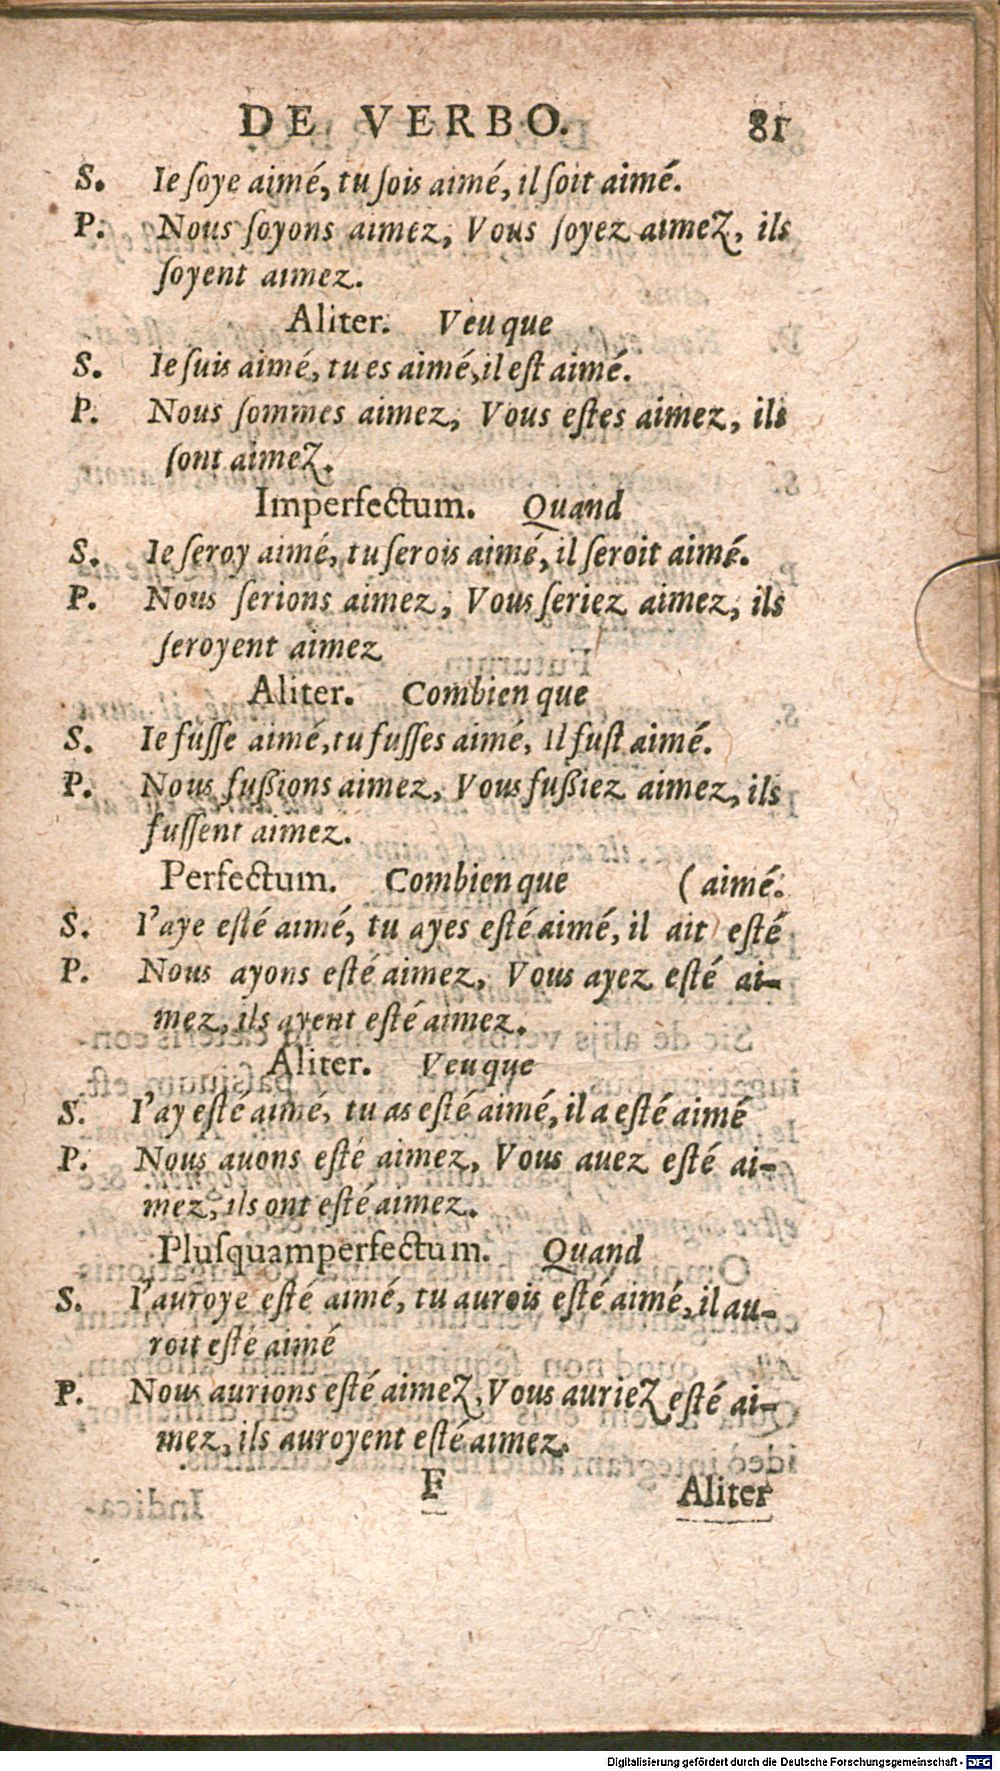 DE VERBO. 81
S. Ie ſoye aimé, tu ſois aimé, il ſoit aimé.
P. Nous ſoyons aimez, Vous ſoyez aimez, ils
ſoyent aimez.
Aliter. Veu que
S. Ie ſuis aimé, tu es aimé, il eſt aimé.
P. Nous ſommes aimez, Vous eſtes aimez, ils
ſont aimez.
Imperfectum. Quand
S. Ie ſeroy aimé, tu ſerois aimé, il ſeroit aimé.
P. Nous ſerions aimez, Vous ſeriez aimez, ils
ſeroyent aimez
Aliter. Combien que
S. Ie fuſſe aimé, tu fuſſes aimé, il fuſt aimé.
P. Nous fußions aimez, Vous fußiez aimez, ils
fuſſent aimez.
Perfectum. Combien que (aimé.
S. I'aye eſté aimé, tu ayes eſté aimé, il ait eſté
P. Nous ayons eſté aimez, Vous ayez eſté ai-
mez, ils ayent eſté aimez.
Aliter. Veu que
S. I'ay eſté aimé, tu as eſté aimé, il a eſté aimé
P. Nous auons eſté aimez, Vous auez eſté ai-
mez, ils ont eſté aimez.
Pluſquamperfectum. Quand
S. I'auroye eſté aimé, tu aurois eſté aimé, il au-
roit eſté aimé
P. Nous aurions eſté aimez, Vous auriez eſté ai-
mez, ils auroyent eſté aimez.
F Aliter
Digitalisierung gefördert durch die Deutsche Forschungsgemeinschaft - DFG